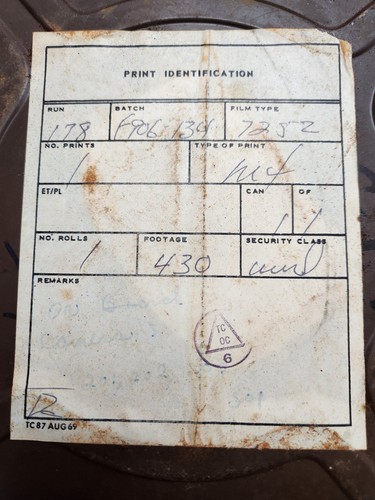 PRINT IDENTIFICATION
RUN BATCH FILM TYPE
178 7252
NO. PRINTS TYPE OF PRINT
1
ET/PL CAN OF
1 1
NO. ROLLS FOOTAGE SECURITY CLASS
1 430
REMARKS
On Board
Camera
TC
OC
6
TC 87 AUG 69